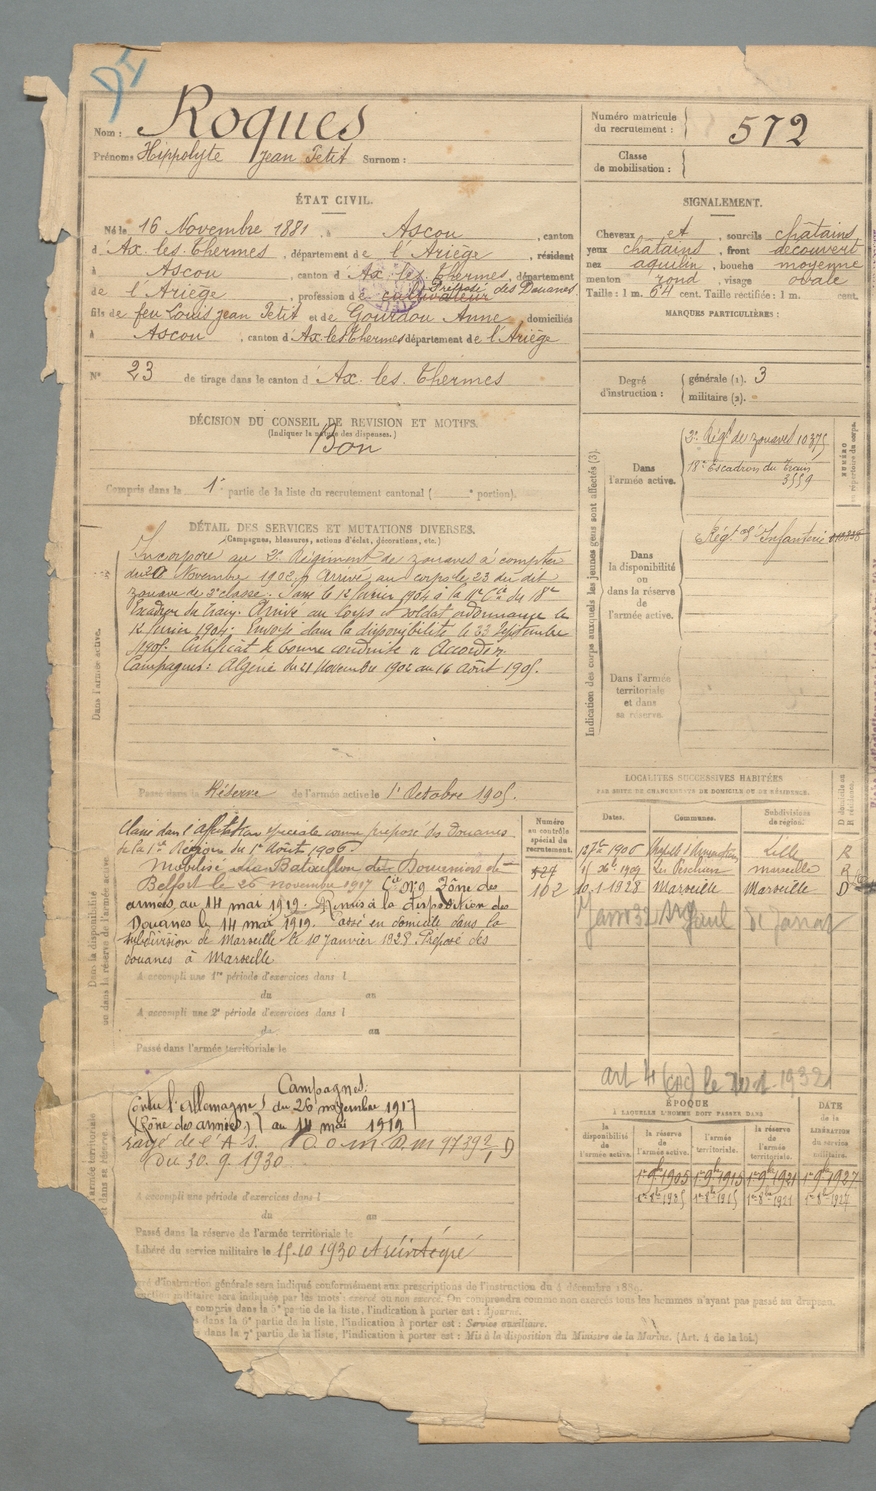 Nom : Roques
Prénoms Hippolyte Jean Petit Surnom :
Numéro matricule du recrutement : 572
Classe de mobilisation :
ÉTAT CIVIL.
Né le 16 Novembre 1881, à Ascou, canton
d'Ax. les. Thermes, département de l'Ariège, résidant
à Ascou, canton d'Ax. les Thermes, département
de l'Ariège, profession de cultivateur Préposé des Douanes
fils de feu Louis Jean Petit et de Gourdou Anne, domiciliés
à Ascou, canton d'Ax. les Thermes département de l'Ariège
N° 23 de tirage dans le canton d'Ax. les. Thermes
SIGNALEMENT.
Cheveux et, sourcils châtains
yeux châtains, front découvert
nez aquilin, bouche moyenne
menton rond, visage ovale
Taille : 1 m. 64 cent. Taille rectifiée : 1 m. cent.
MARQUES PARTICULIÈRES :
Degré d'instruction : générale (1). 3
militaire (2).
DÉCISION DU CONSEIL DE REVISION ET MOTIFS.
(Indiquer la nature des dispenses.)
Bon
Compris dans la 1e partie de la liste du recrutement cantonal ( e portion).
DÉTAIL DES SERVICES ET MUTATIONS DIVERSES.
(Campagnes, blessures, actions d'éclat, décorations, etc.)
Dans l'armée active.
Incorporé au 2e Régiment de zouaves à compter
du 20 Novembre 1902, Arrivé au corps le 23 du dit
zouave de 2e classe. Passé le 12 février 1904 à la 11e Cie du 18e
Escadron du train. Arrivé au Corps et soldat ordonnance le
12 février 1904. Envoyé dans la disponibilité le 23 Septembre
1905. Certificat de bonne conduite "Accordé".
Campagnes : Algérie du 21 Novembre 1902 au 16 Août 1905.
Passé dans la Réserve de l'armée active le 1er Octobre 1905.
Indication des corps auxquels les jeunes gens sont affectés (3).
NUMÉRO
Dans l'armée active.
2e Régt de zouaves 10375
18e Escadron du Train
3559
Dans la disponibilité ou dans la réserve de l'armée active.
Régt d'Infanterie
Dans l'armée territoriale et dans sa réserve
LOCALITÉS SUCCESSIVES HABITÉES
PAR SUITE DE CHANGEMENTS DE DOMICILE OU DE RÉSIDENCE.
Dates. Communes. Subdivisions de région. D domicile ou R résidence.
1906 Lille R
1909 Marseille R
10.1.1928 Marseille Marseille D
Janv 32
Numéro au contrôle spécial du recrutement.
102
Dans la disponibilité ou dans la réserve de l'armée active.
Classé dans l'affectation spéciale comme préposé des Douanes
de la 1re Région du 1er Août 1906.
Mobilisé au Bataillon des Douaniers de
Belfort le 26 novembre 1917 Zone des
armées, au 14 mai 1919. Remis à la disposition des
Douanes le 14 mai 1919. Passé en domicile dans la
subdivision de Marseille le 10 Janvier 1928 Préposé des
douanes à Marseille
A accompli une 1re période d'exercices dans l
du au
A accompli une 2e période d'exercices dans l
du au
Passé dans l'armée territoriale le
Campagnes:
Contre l'Allemagne du 26 novembre 1917
(Zône des armées) au 14 mai 1919
rayé de l'A. S.
du 30. 9. 1930
A accompli une période d'exercices dans l
du au
Passé dans la réserve de l'armée territoriale le
Libéré du service militaire le 15-10 1930
ÉPOQUE
À LAQUELLE L'HOMME DOIT PASSER DANS
la disponibilité de l'armée active. la réserve de l'armée active. l'armée territoriale. la réserve de l'armée territoriale. DATE de la LIBÉRATION du service militaire.
d'instruction générale sera indiqué conformément aux prescriptions de l'instruction du 4 décembre 1889.
militaire sera indiquée par les mots : exercé ou non exercé. On comprendra comme non exercés tous les hommes n'ayant pas passé au drapeau.
compris dans la 5e partie de la liste, l'indication à porter est : Ajourné.
dans la 6e partie de la liste, l'indication à porter est : Service auxiliaire.
dans la 7e partie de la liste, l'indication à porter est : Mis à la disposition du Ministre de la Marine. (Art. 4 de la loi.)